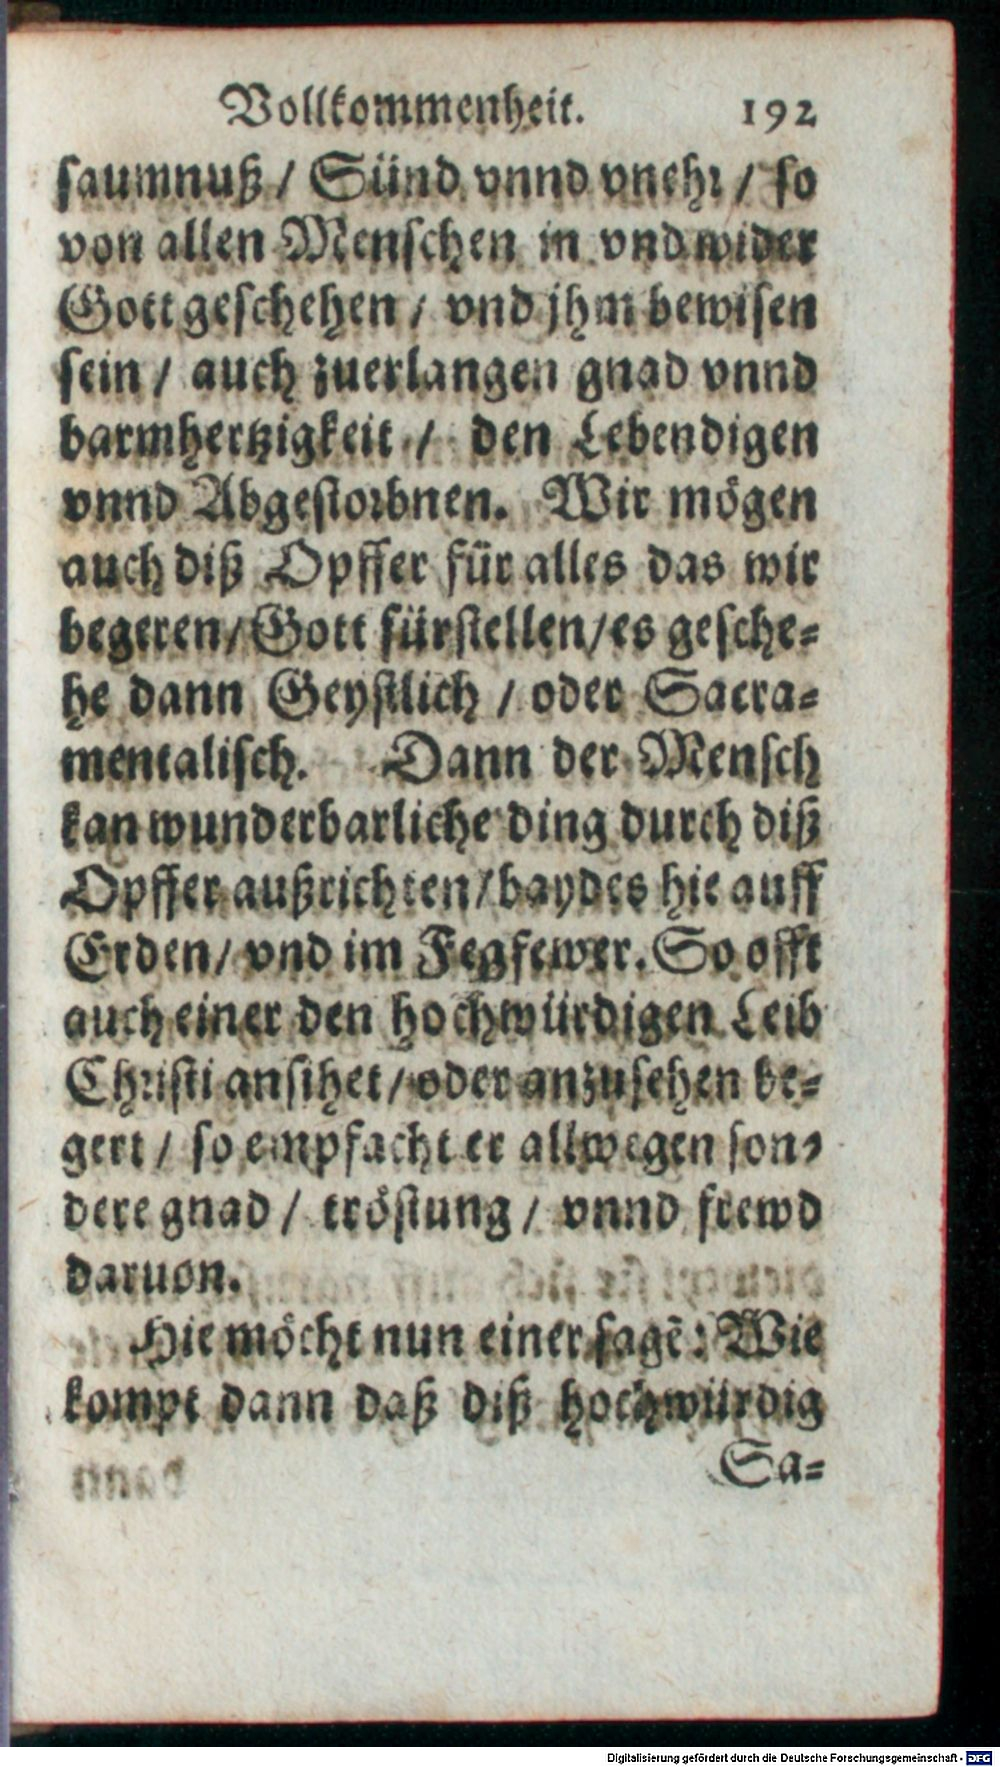 Vollkommenheit. 192
saumnuß / Sünd vnnd vnehr / so
von allen Menschen in vnd wider
Gott geschehen / vnd jhm bewisen
sein / auch zuerlangen gnad vnnd
barmhertzigkeit / den Lebendigen
vnnd Abgestorbnen. Wir mögen
auch diß Opffer für alles das wir
begeren / Gott fürstellen / es gesche=
he dann Geystlich / oder Sacra=
mentalisch. Dann der Mensch
kan wunderbarliche ding durch diß
Opffer außrichten / baydes hie auff
Erden / vnd im Fegfewer. So offt
auch einer den hochwürdigen Leib
Christi ansihet / oder anzusehen be=
gert / so empfacht er allwegen son=
dere gnad / tröstung / vnnd frewd
daruon.
Hie möcht nun einer sagē: Wie
kompt dann daß diß hochwürdig
Sa=
Digitalisierung gefördert durch die Deutsche Forschungsgemeinschaft - DFG